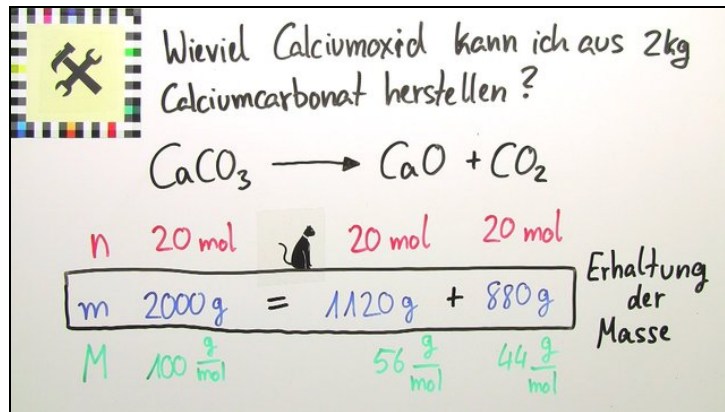 Wieviel Calciumoxid kann ich aus 2kg
Calciumcarbonat herstellen?
CaCO₃ → CaO + CO₂
n 20 mol 20 mol 20 mol
m 2000 g = 1120 g + 880 g
Erhaltung
der
Masse
M 100 g/mol 56 g/mol 44 g/mol